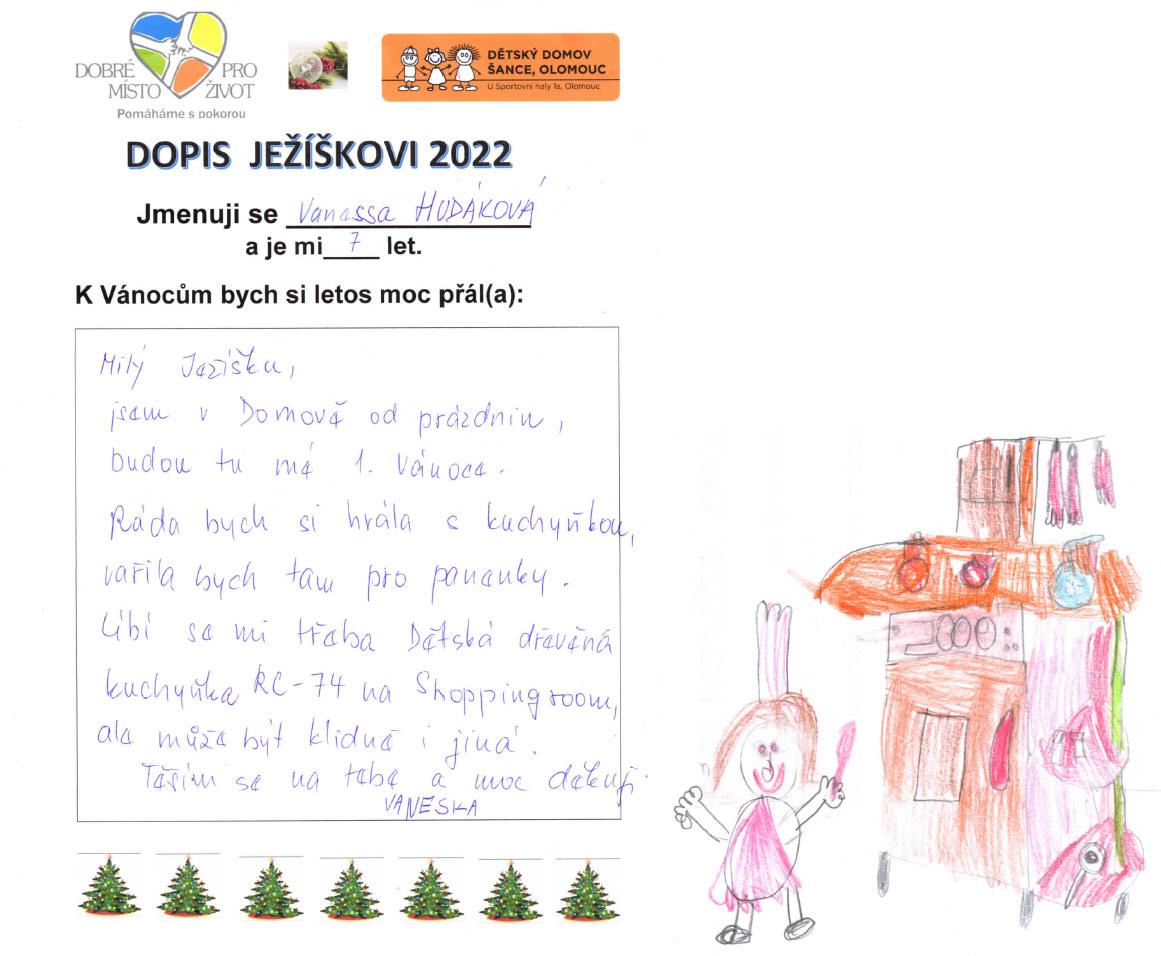 DOBRÉ PRO
MÍSTO ŽIVOT
Pomáháme s pokorou
DĚTSKÝ DOMOV
ŠANCE, OLOMOUC
U Sportovní haly 1a, Olomouc
DOPIS JEŽÍŠKOVI 2022
Jmenuji se Vanessa HUDÁKOVÁ
a je mi 7 let.
K Vánocům bych si letos moc přál(a):
Milý Ježíšku,
jsem v Domově od prázdnin,
budou tu mé 1. Vánoce.
Ráda bych si hrála s kuchyňkou,
vařila bych tam pro panenky.
Líbí se mi třeba Dětská dřevěná
kuchyňka RC-74 na Shoppingroom,
ale může být klidně i jiná.
Těším se na tebe a moc děkuji.
VANESKA